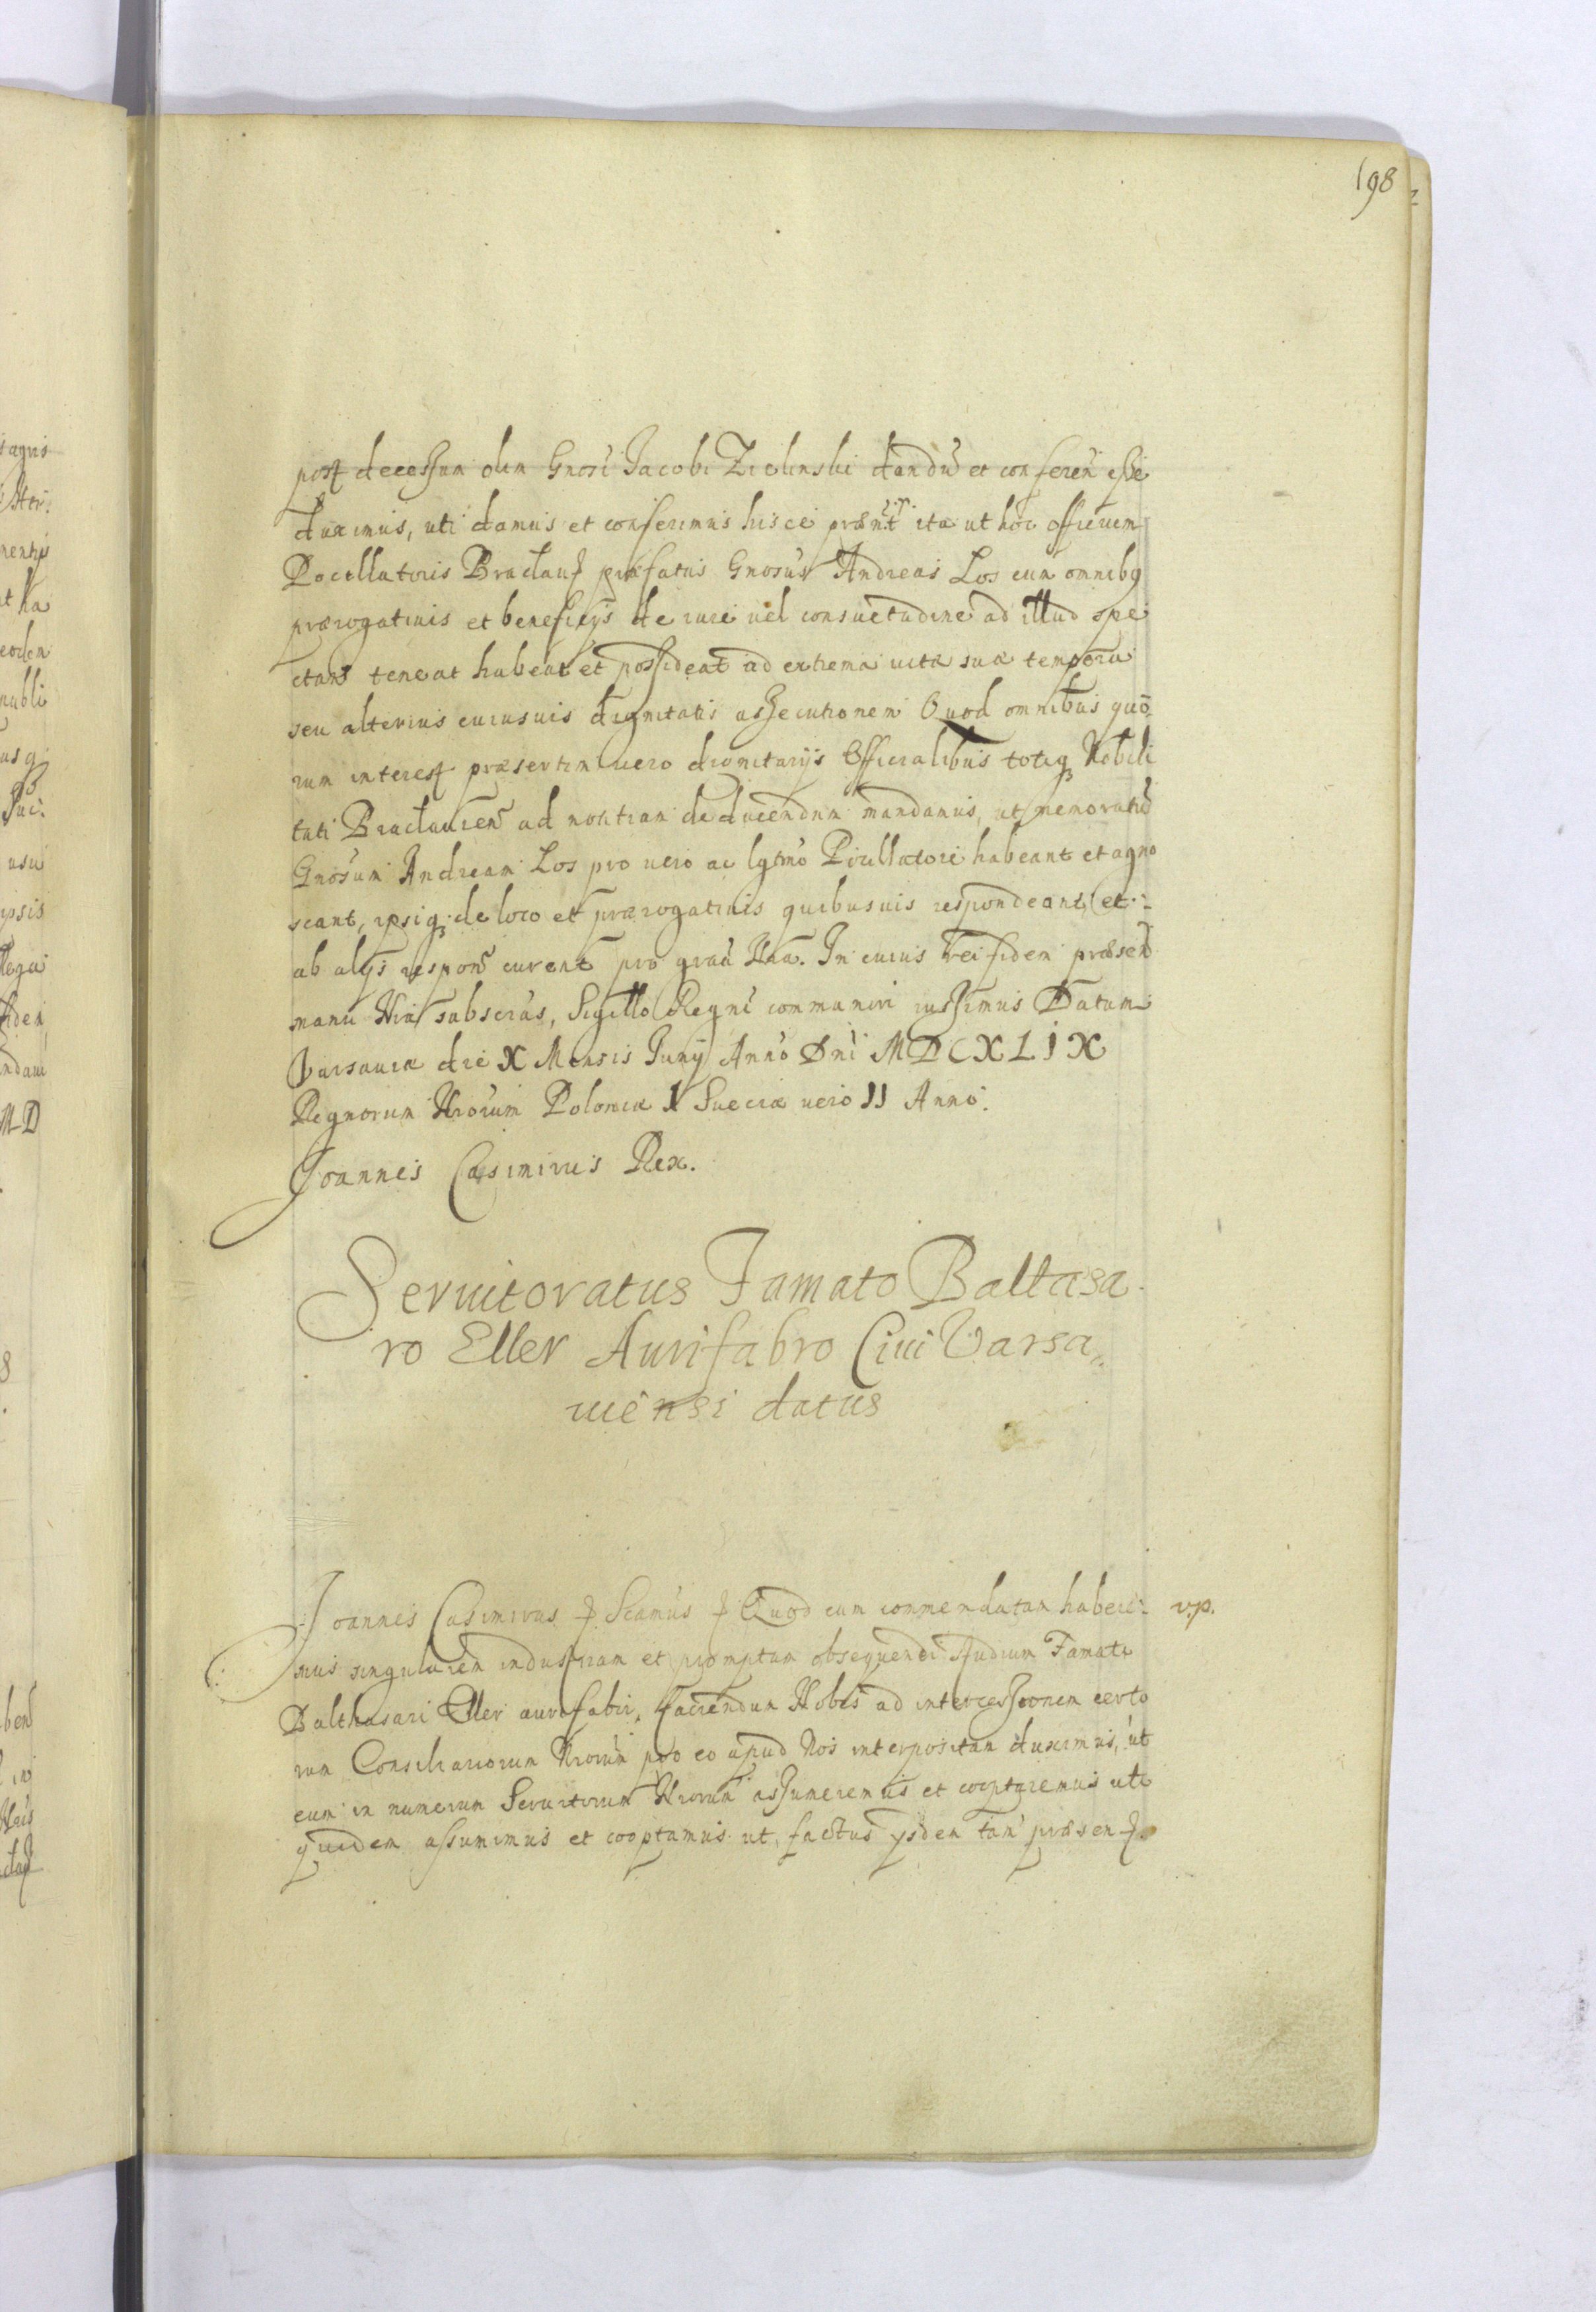 198
post decessum olim Gnosi Jacobi Zielinski dandũ et conferen̄ esse
duximus, uti damus et conferimus hisce præn̄t ita ut hoc officium
Pocillatoris Braclav̄ præfatus Gnosus Andreas Los cum omnibq
prærogatiuis et beneficijs de iure uel consuetudine ad illud spe
ctan̄ teneat habeat et possideat ad extrema uitæ suæ tempora
seu alterius cuiusuis dignitatis assecutionem Quod omnibus quō
rum interest præsertim uero dignitarijs Officialibus totiq3 Nobili
tati Braclauien̄ ad notitiam deducendum mandamus, ut memoratũ
Gnosum Andream Los pro uero ac lgtmo Pocillatore habeant et agno
scant, ipsiq3 de loco et prærogatiuis quibusuis respondeant, et
ab alijs respon̄ curent pro gra̅ Nra. In cuius rei fidem præsen̄
manu Nra subscras, Sigillo Regni communiri iussimus Datum
Varsauiæ die X Mensis Junij Anno Dni MDCXLIX
Regnorum Nrorum Poloniæ I Sueciæ uero II Anno.
Joannes Casimirus Rex.
Seruitoratus Famato Baltasa
ro Eller Aurifabro Ciui Varsa„
uiensi datus
Joannes Casimirus Scamus Quod cum commendatam habere- v.p.
mus singularem industriam et promptum obsequendi studium Famati
Balthasari Eller aurifabri, faciendum Nobis ad intercessionem certo
rum Consiliariorum Nrorum pro eo apud Nos interpositam duximus, ut
eum in numerum Seruitorum Nrorum assumeremus et cooptaremus uti
quidem assumimus et cooptamus ut, factus ysdem tan præsen